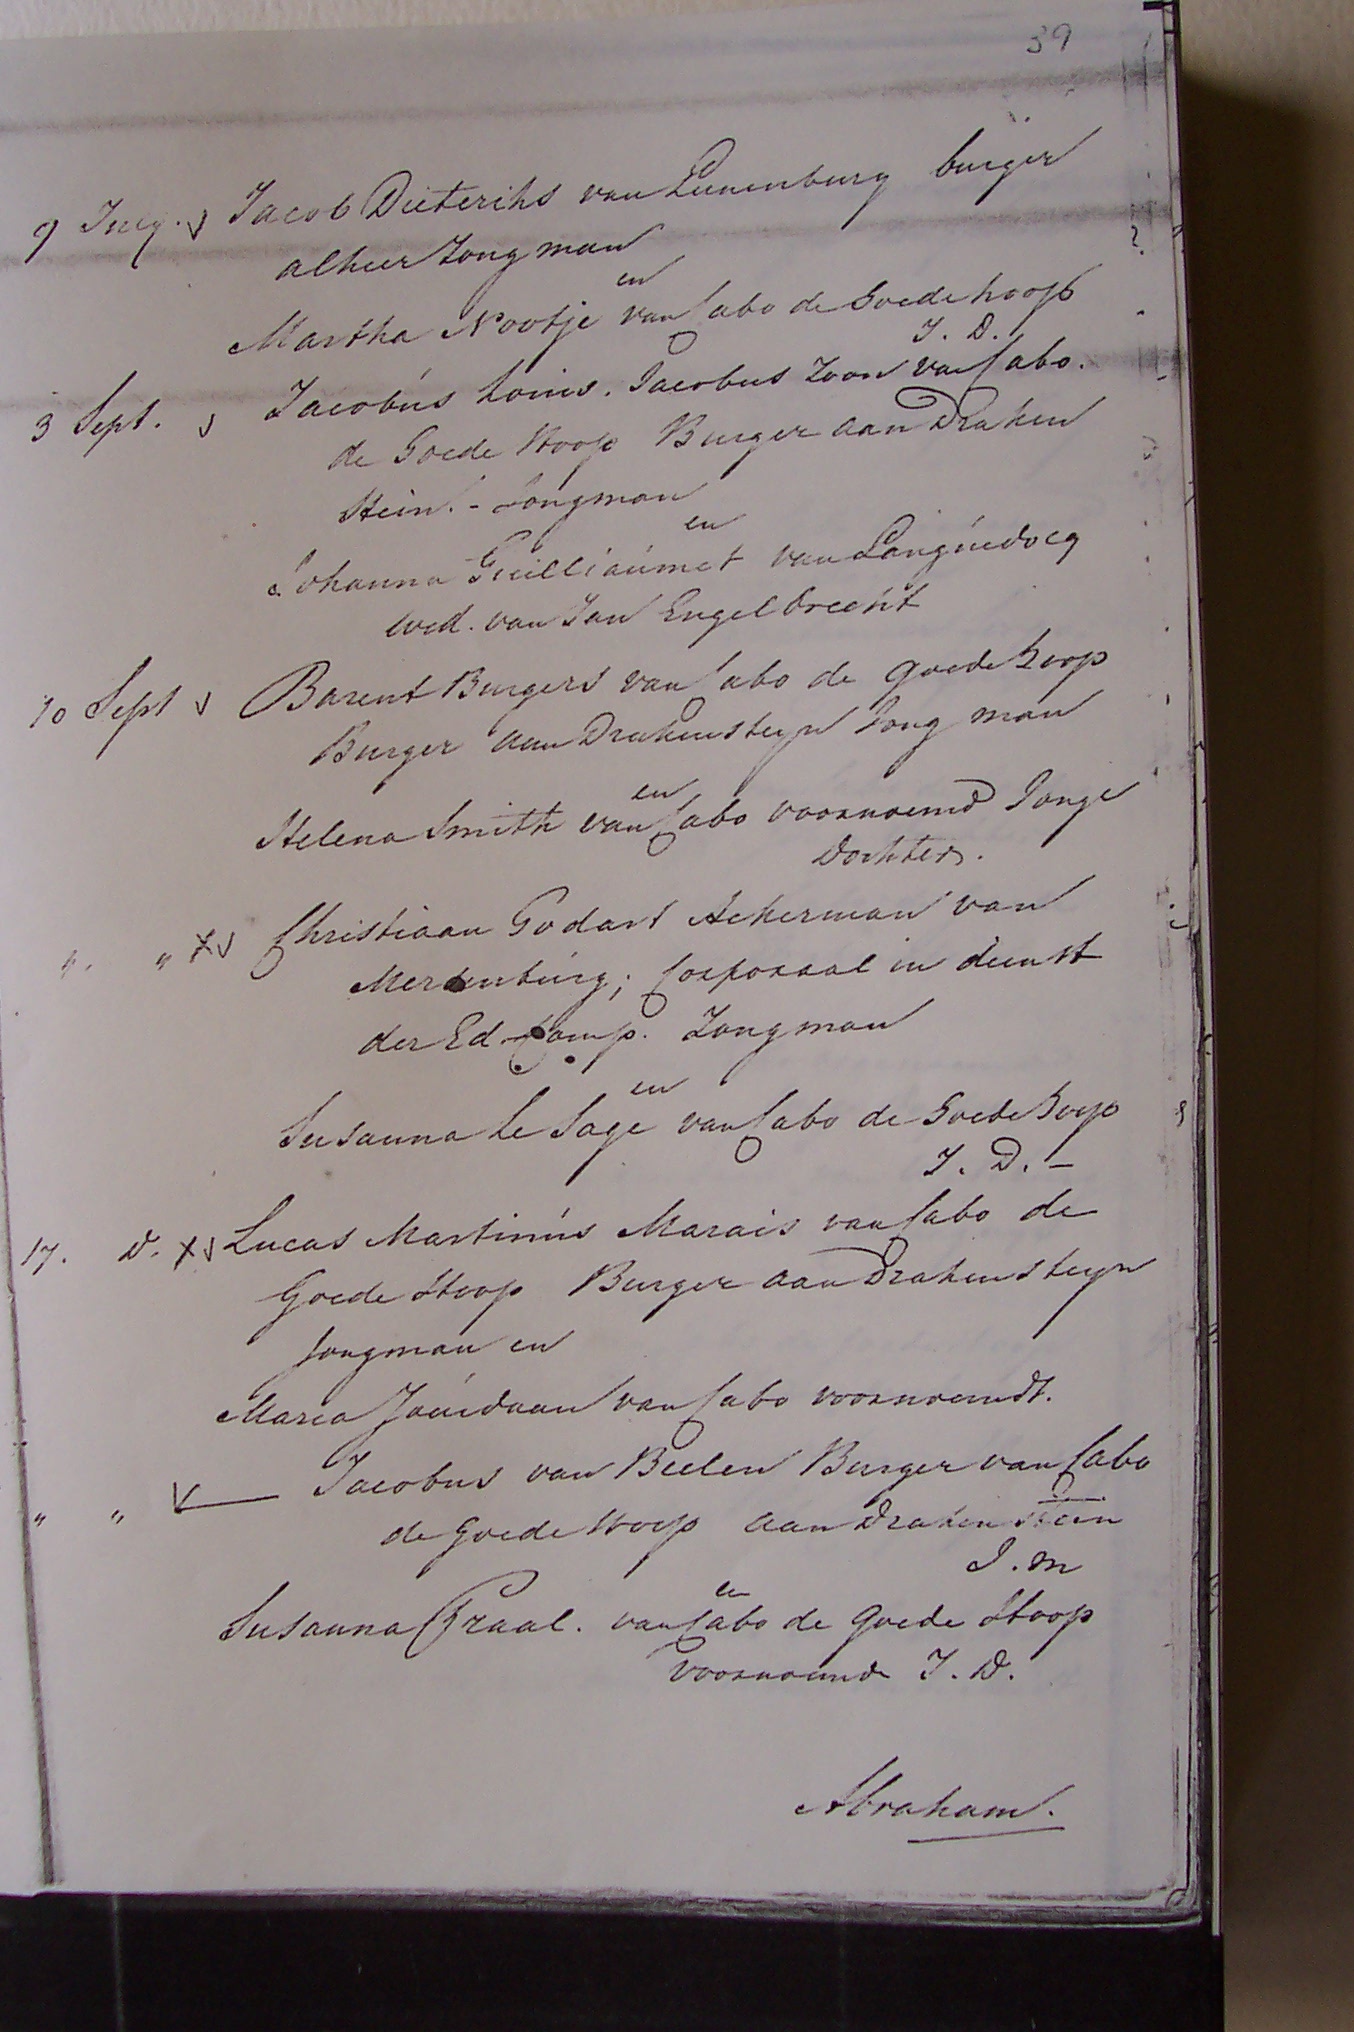 39
9 Jucy. v Jacob Dieterihs van Lunenburg burger
alhier Jongman
en
Martha Nootje van Cabo de Goede hoop
J. D.
3 Sept. v Jacobus Louis. Jacobus Zoon van Cabo.
de Goede Hoop Burger aan Draken
Stein. - Jongman
en
Johanna Guilliaumet van Languedocq
wed. van Jan Engelbrecht
10 Sept v Barent Burgers van Cabo de goede hoop
Burger aan Drakensteyn Jong man
en
Helena Smith van Cabo voornoemd Jonge
Dochter.
" " x v Christiaan Godart Ackerman van
Merenburg; Corporaal in dienst
der Ed Comp. Jongman
en
Susanna Le Sage van Cabo de Goede Hoop
J. D. -
17. D. x v Lucas Martinus Marais van Cabo de
Goede Hoop Burger aan Drakensteyn
Jongman en
Maria Jourdaan van Cabo voornoemdt.
" " v Jacobus van Beelen Burger van Cabo
de Goede Hoop aan Drakenstein
J. m
en
Susanna Graal. van Cabo de Goede Hoop
voornoemde J. D.
Abraham.